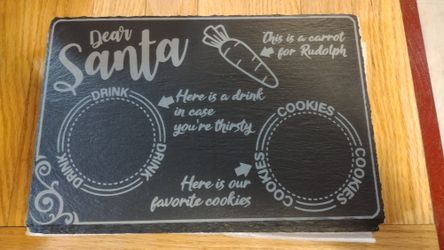 Dear
Santa
This is a carrot
for Rudolph
DRINK
DRINK
DRINK
Here is a drink
in case
you're thirsty
COOKIES
COOKIES
COOKIES
Here is our
favorite cookies